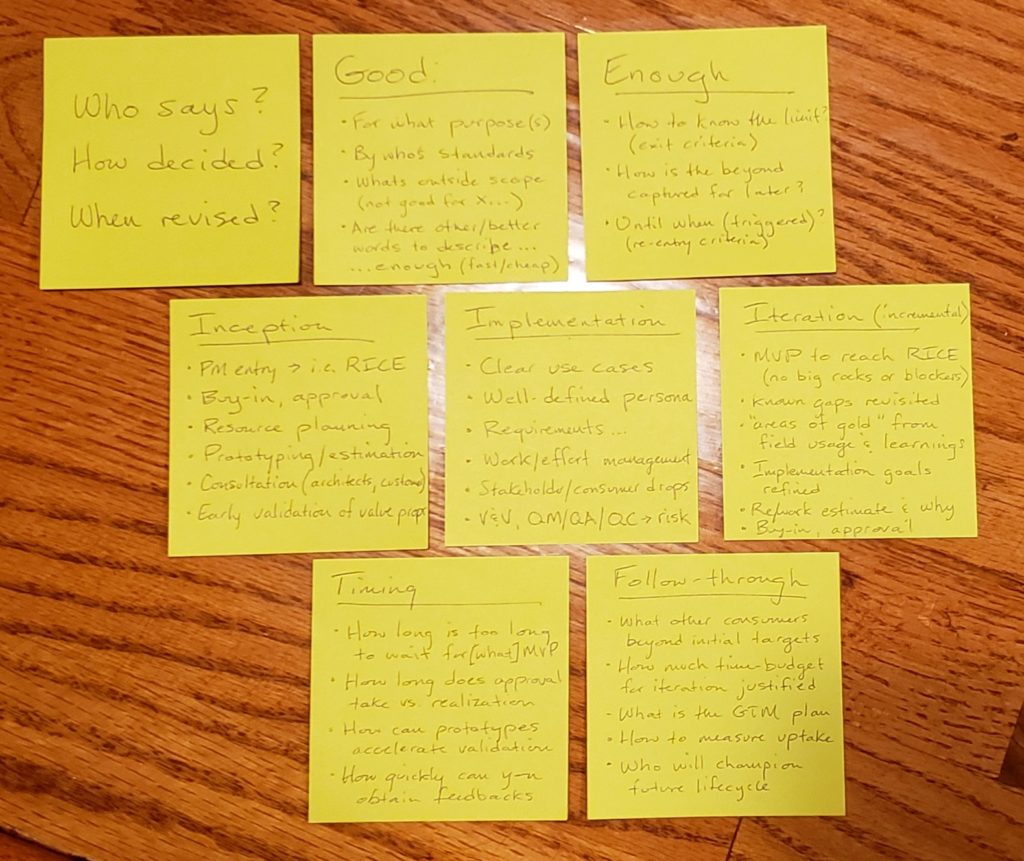 Who says?
How decided?
When revised?
Good:
• For what purpose(s)
• By who's standards
• Whats outside scope
(not good for X...)
• Are there other/better
words to describe...
...enough (fast/cheap)
Enough
• How to know the limit?
(exit criteria)
• How is the beyond
captured for later?
• Until when (triggered)?
(re-entry criteria)
Inception
• PM entry → i.e. RICE
• Buy-in, approval
• Resource planning
• Prototyping/estimation
• Consultation (architects, customer)
• Early validation of value props
Implementation
• Clear use cases
• Well-defined persona
• Requirements...
• Work/effort management
• Stakeholdr/consumer drops
• V&V, QM/QA/QC → risk
Iteration (incremental)
• MVP to reach RICE
(no big rocks or blockers)
• Known gaps revisited
• "areas of gold" from
field usage & learnings
• Implementation goals
refined
• Re/work estimate & why
• Buy-in, approval
Timing
• How long is too long
to wait for [what] MVP
• How long does approval
take vs. realization
• How can prototypes
accelerate validation
• How quickly can y-n
obtain feedbacks
Follow-through
• What other consumers
beyond initial targets
• How much time-budget
for iteration justified
- What is the GTM plan
• How to measure uptake
• Who will champion
future lifecycle